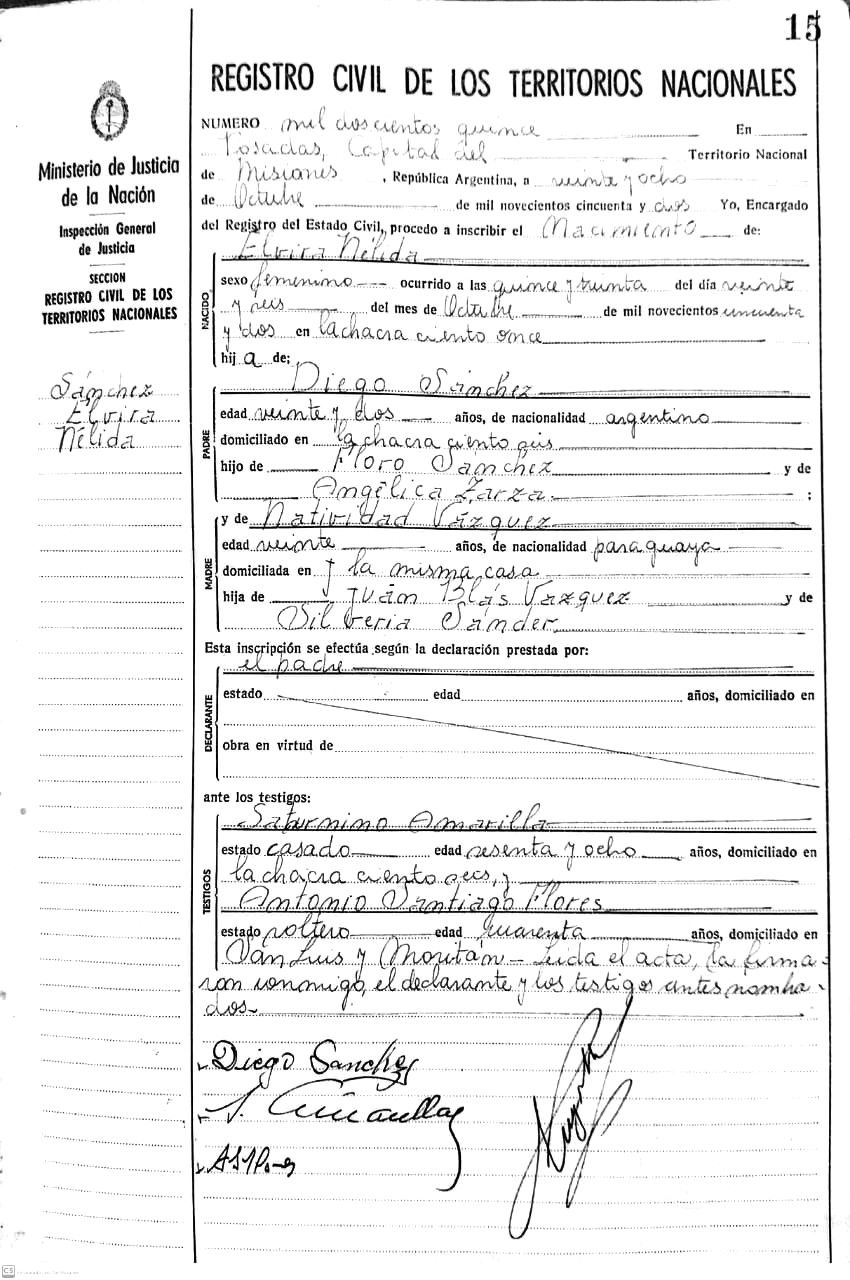 15
REGISTRO CIVIL DE LOS TERRITORIOS NACIONALES
Ministerio de Justicia
de la Nación
Inspección General
de Justicia
SECCION
REGISTRO CIVIL DE LOS
TERRITORIOS NACIONALES
Sánchez
Elvira
Nélida
NUMERO mil doscientos quince En
Posadas, Capital del Territorio Nacional
de Misiones, República Argentina, a veinte y ocho
de Octubre de mil novecientos cincuenta y dos Yo, Encargado
del Registro del Estado Civil, procedo a inscribir el Nacimiento de:
NACIDO
Elvira Nélida
sexo femenino ocurrido a las quince y treinta del día veinte
y seis del mes de Octubre de mil novecientos cincuenta
y dos en la chacra ciento once
hij a de;
PADRE
Diego Sánchez
edad veinte y dos años, de nacionalidad argentino
domiciliado en la chacra ciento seis
hijo de Floro Sánchez y de
Angélica Zarza :
MADRE
y de Natividad Vázquez
edad veinte años, de nacionalidad paraguaya
domiciliada en la misma casa
hija de Juán Blás Vázquez y de
Silveria Sánder
Esta inscripción se efectúa según la declaración prestada por:
el padre
DECLARANTE
estado edad años, domiciliado en
obra en virtud de
ante los testigos:
TESTIGOS
Saturnino Amarilla
estado casado edad sesenta y ocho años, domiciliado en
la chacra ciento seis, y
Antonio Santiago Flores
estado soltero edad cuarenta años, domiciliado en
San Luis y Moritán - Leida el acta, la firma-
ron conmigo, el declarante y los testigos antes nombra-
dos-
Diego Sanchez
CS